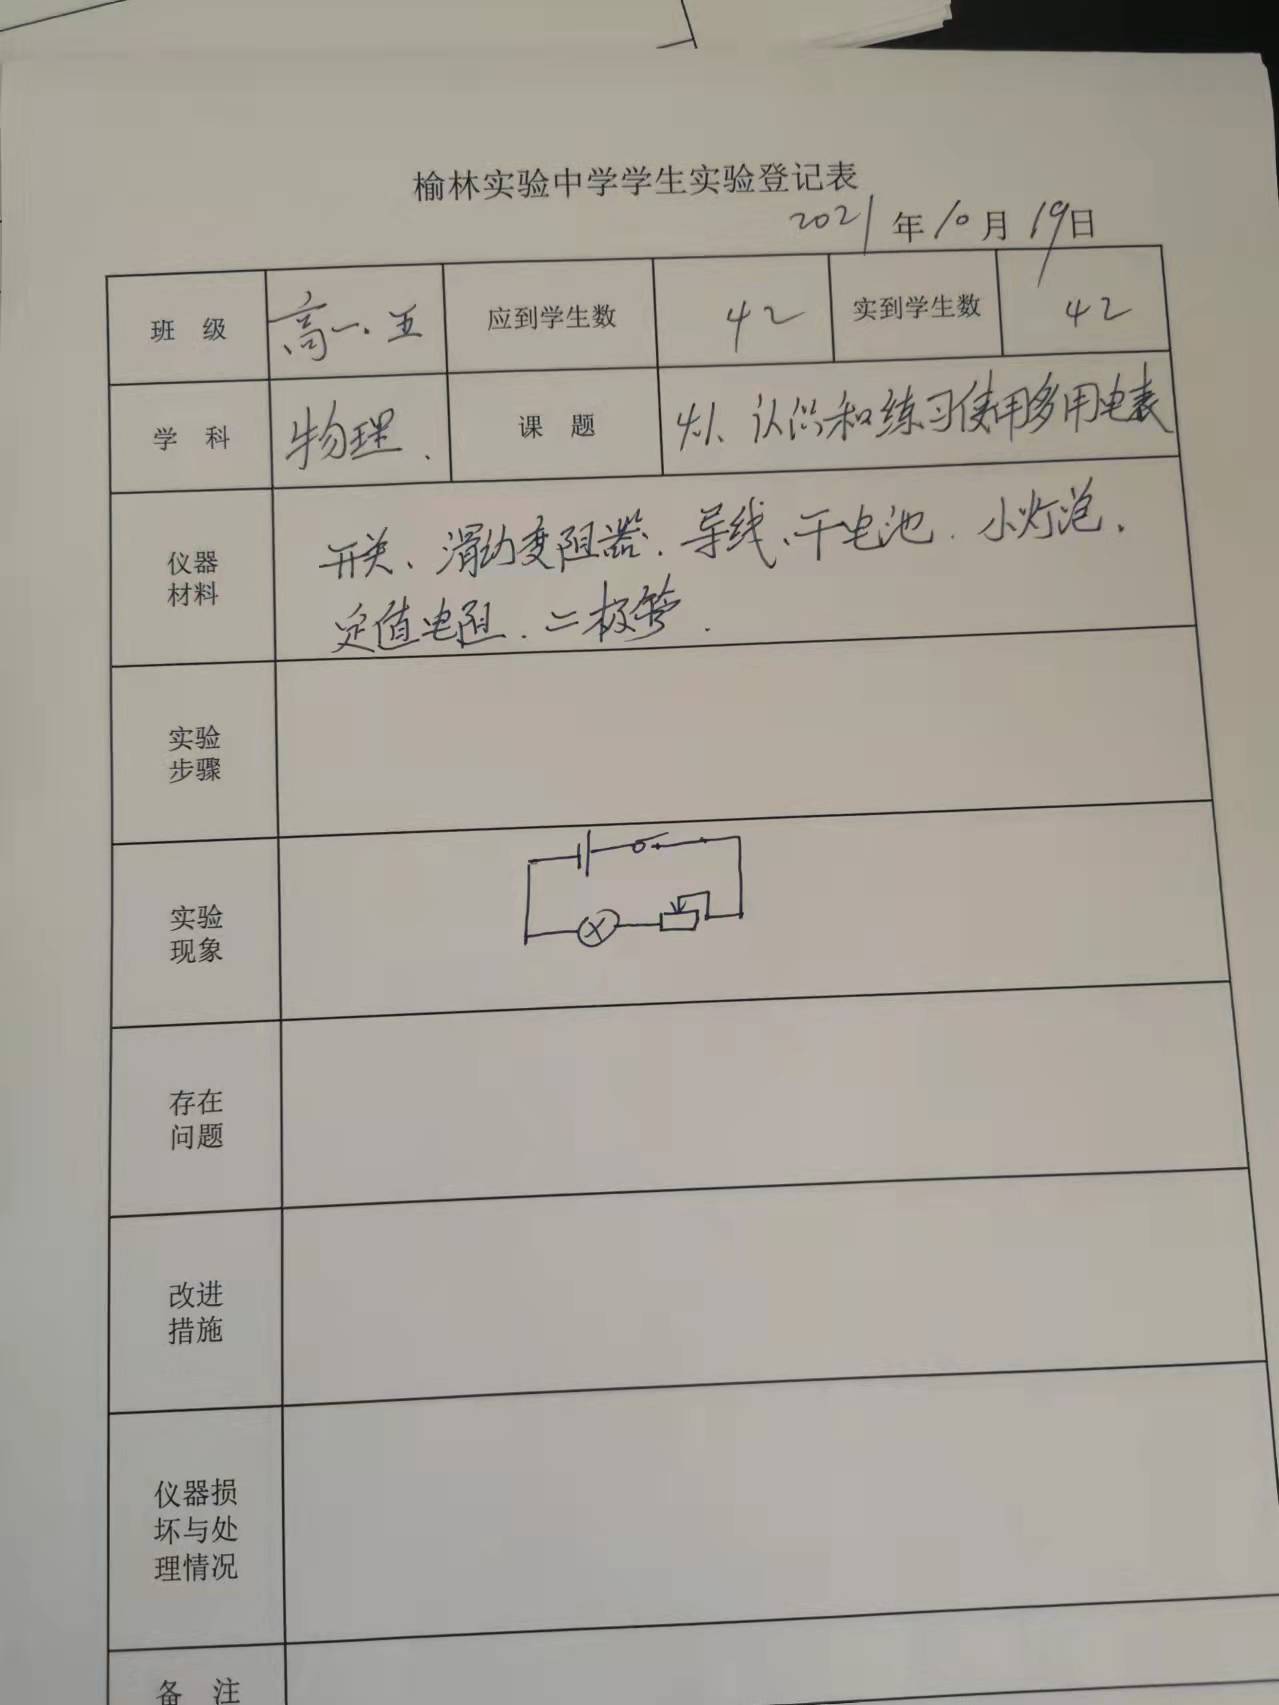 榆林实验中学学生实验登记表
2021年10月19日
班 级 高一.五 应到学生数 42 实到学生数 42
学 科 物理. 课 题 认识和练习使用多用电表
仪器
材料
开关、滑动变阻器.导线、干电池.小灯泡.
定值电阻.二极管.
实验
步骤
实验
现象
存在
问题
改进
措施
仪器损
坏与处
理情况
备 注